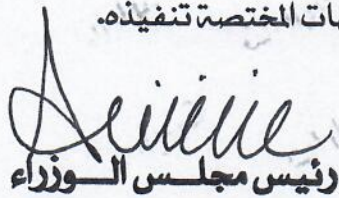 المختصة تنفيذه.
رئيس مجلس الوزراء